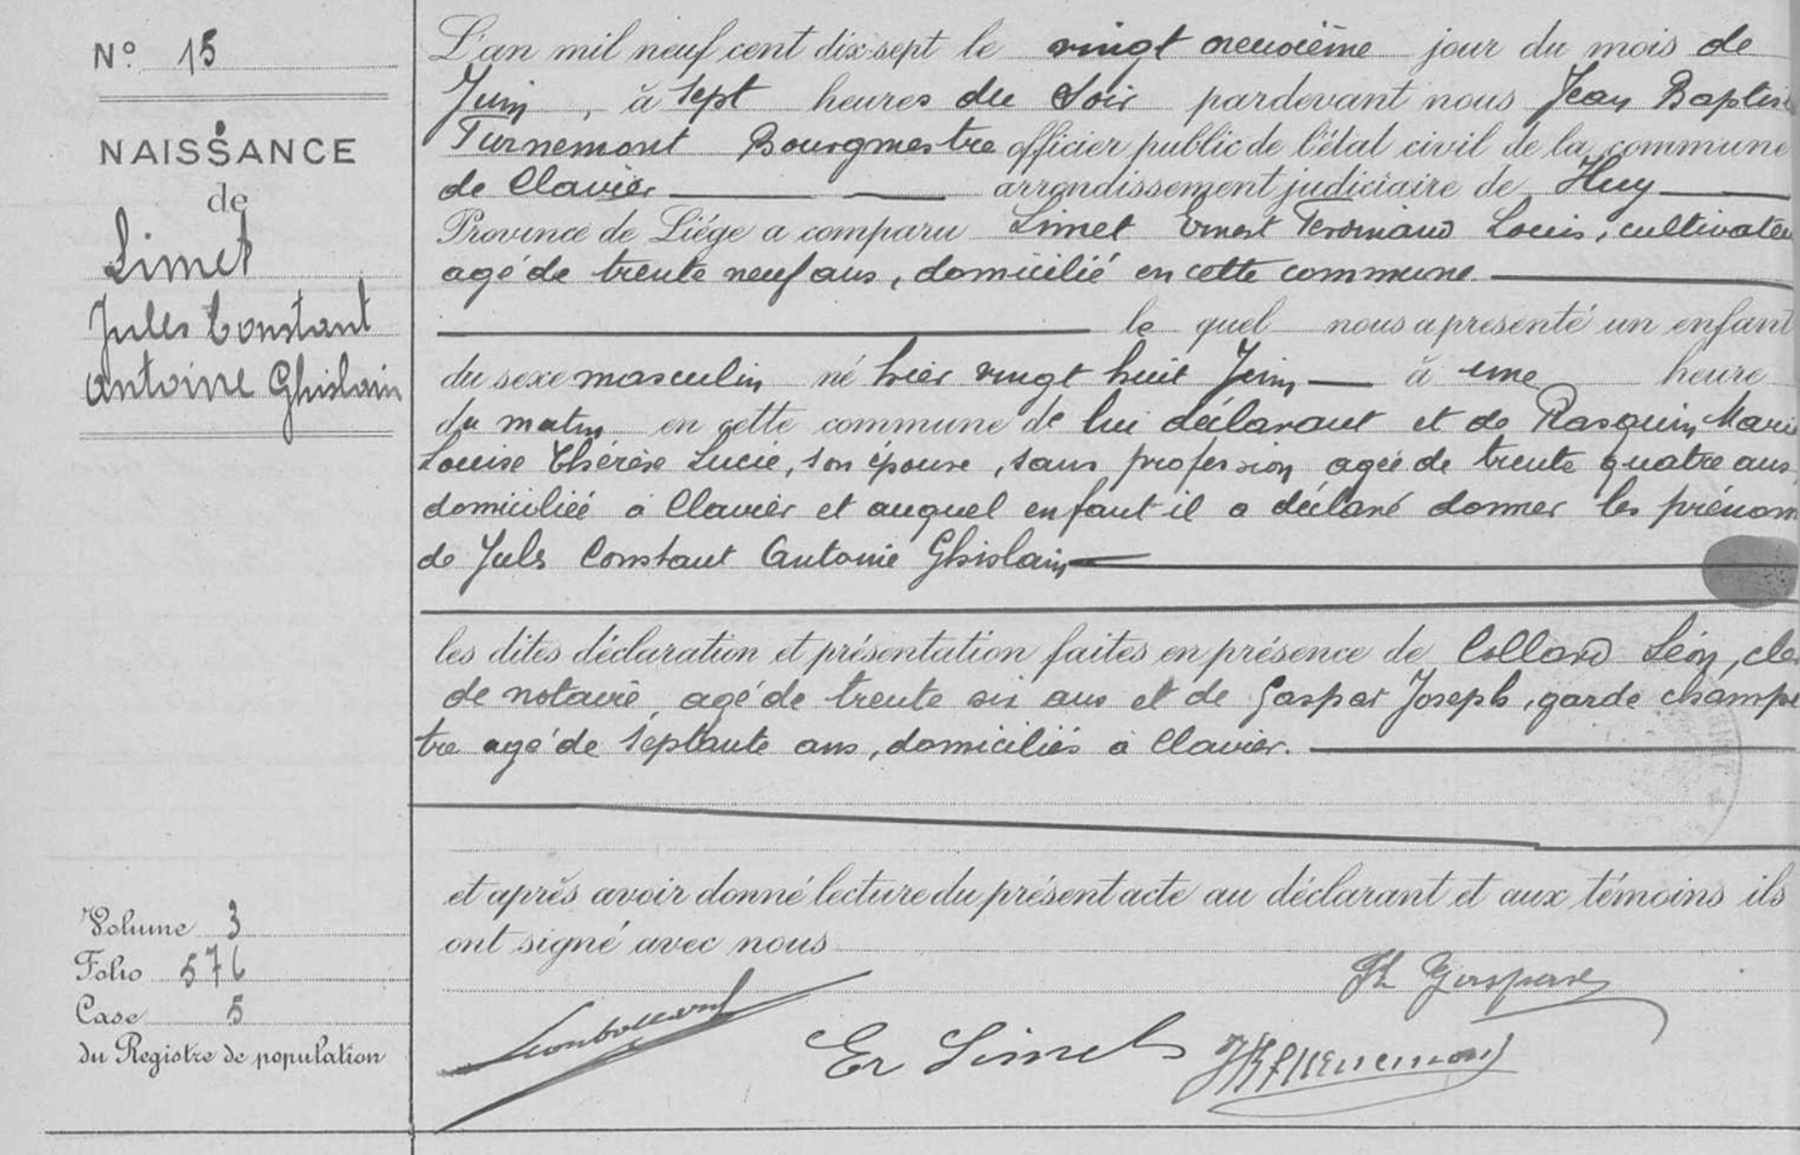 N° 15
NAISSANCE
de
Limet
Jules Constant
Antoine Ghislain
L'an mil neuf cent dix-sept le vingt neuvième jour du mois de
Juin, à sept heures du soir pardevant nous Jean Baptis
Turnemont Bourgmestre officier public de l'état civil de la commune
de Clavier arrondissement judiciaire de Huy
Province de Liége a comparu Limet Ernest Ferdinand Louis, cultivateu
agé de trente neuf ans, domicilié en cette commune
le quel nous a presenté un enfant
du sexe masculin né hier vingt huit Juin à une heure
du matin en cette commune de lui déclarant et de Rasquin Marie
Louise Thérèse Lucie, son épouse, sans profession agée de trente quatre ans,
domiciliée à Clavier et auquel enfant il a déclaré donner les prénom
de Juls Constant Antoine Ghislain
les dites déclaration et présentation faites en présence de Collard Léon, cler
de notaire, agé de trente six ans et de Gaspar Joseph, garde champê
tre agé de septante ans, domiciliés à Clavier.
et après avoir donné lecture du présent acte au déclarant et aux témoins ils
ont signé avec nous
Volume 3
Folio 576
Case 5
du Registre de population
Gaspard
Leon Collard
Er Limet